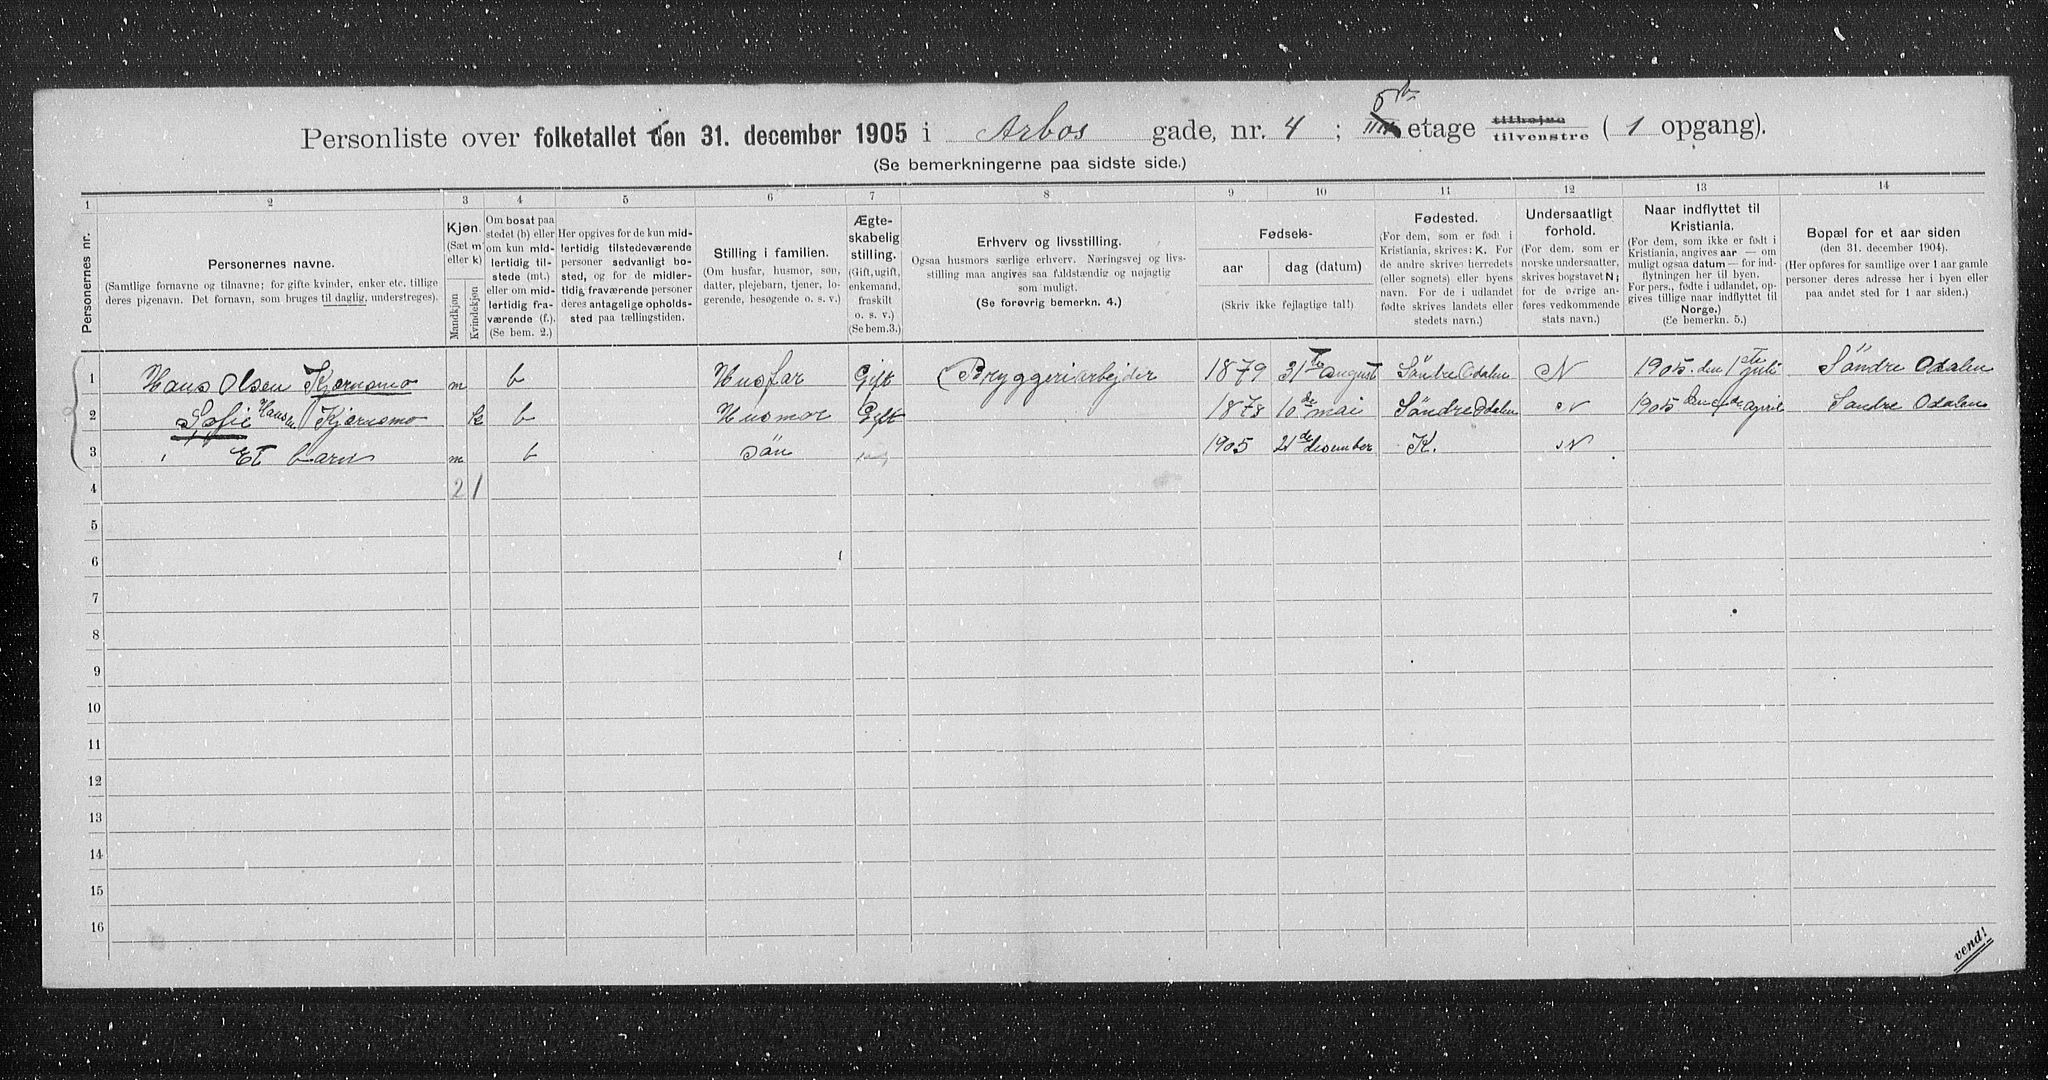 Personliste over folketallet den 31. december 1905 i Arbos gade, nr. 4; 5te etage tilhøjre tilvenstre (1 opgang).
(Se bemerkningerne paa sidste side.)
1 2 3 4 5 6 7 8 9 10 11 12 13 14
Personernes nr.
Personernes navne.
(Samtlige fornavne og tilnavne; for gifte kvinder, enker etc. tillige
deres pigenavn. Det fornavn, som bruges til daglig, understreges).
Kjøn.
(Sæt m
eller k)
Mandkjøn
Kvindekjøn
Om bosat paa
stedet (b) eller
om kun mid-
lertidig til-
stede (mt.)
eller om mid-
lertidig fra-
værende (f.).
(Se bem. 2.)
Her opgives for de kun mid-
lertidig tilstedeværende
personer sedvanligt bo-
sted, og for de midler-
tidig fraværende personer
deres antagelige opholds-
sted paa tællingstiden.
Stilling i familien.
(Om husfar, husmor, søn,
datter, plejebarn, tjener, lo-
gerende, besøgende o. s. v.)
Ægte-
skabelig
stilling.
(Gift, ugift,
enkemand,
fraskilt
o. s. v.)
(Se bem.3.)
Erhverv og livsstilling.
Ogsaa husmors særlige erhverv. Næringsvej og livs-
stilling maa angives saa fuldstændig og nøjagtig
som muligt.
(Se forøvrig bemerkn. 4.)
Fødsels-
aar dag (datum)
(Skriv ikke fejlagtige tal!)
Fødested.
(For dem, som er født i
Kristiania, skrives: K. For
de andre skrives herredets
(eller sognets) eller byens
navn. For de i udlandet
fødte skrives landets eller
stedets navn.)
Undersaatligt
forhold.
(For dem, som er
norske undersaatter,
skrives bogstavet N;
for de øvrige an-
føres vedkommende
stats navn.)
Naar indflyttet til
Kristiania.
(For dem, som ikke er født i
Kristiania, angives aar — om
muligt ogsaa datum — for ind-
flytningen her til byen.
For pers., fødte i udlandet, op-
gives tillige naar indflyttet til
Norge.)
(Se bemerkn. 5.)
Bopæl for et aar siden
(den 31. december 1904).
(Her opføres for samtlige over 1 aar gamle
personer deres adresse her i byen eller
paa andet sted for 1 aar siden.)
1 Hans Olsen Kjærnsmo m b Husfar Gift Bryggeriarbejder 1879 31te august Söndre Odalen N 1905 den 1ste juli Söndre Odalen
2 Sofie Hansen Kjærnsmo k b Husmor Gift 1878 10de mai Söndre Odalen N 1905 den 1ste april Søndre Odalen
3 Et barn m b Sön 1905 21de desember K. N
4 2 1
5
6
7
8
9
10
11
12
13
14
15
16
vend!